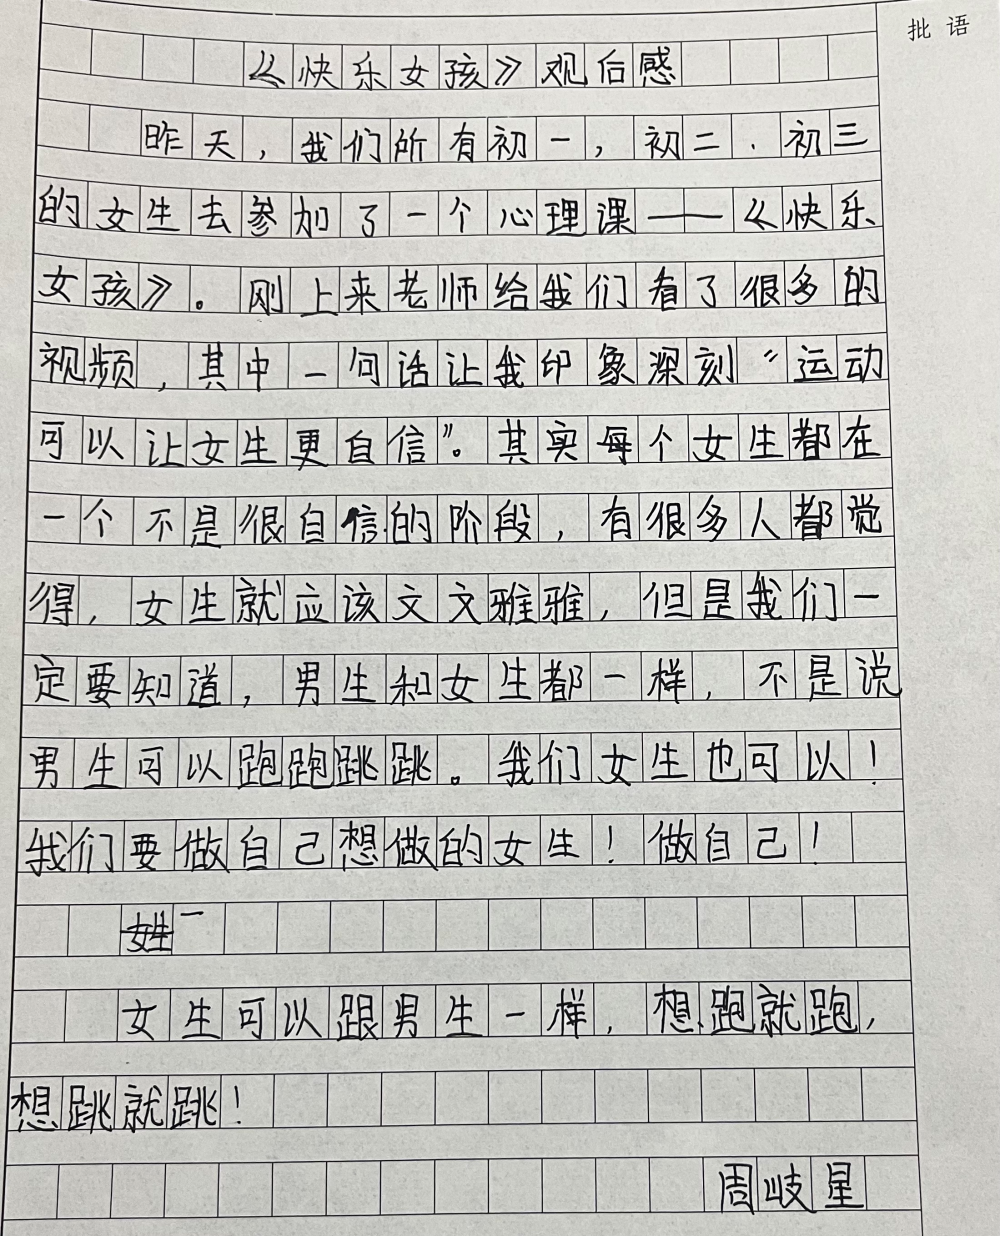 批语
《快乐女孩》观后感
昨天，我们所有初一，初二．初三
的女生去参加了一个心理课——《快乐
女孩》。刚上来老师给我们看了很多的
视频，其中一句话让我印象深刻“运动
可以让女生更自信”。其实每个女生都在
一个不是很自信的阶段，有很多人都觉
得，女生就应该文文雅雅，但是我们一
定要知道，男生和女生都一样，不是说
男生可以跑跑跳跳。我们女生也可以！
我们要做自己想做的女生！做自己！
女生可以跟男生一样，想跑就跑，
想跳就跳！
周岐星